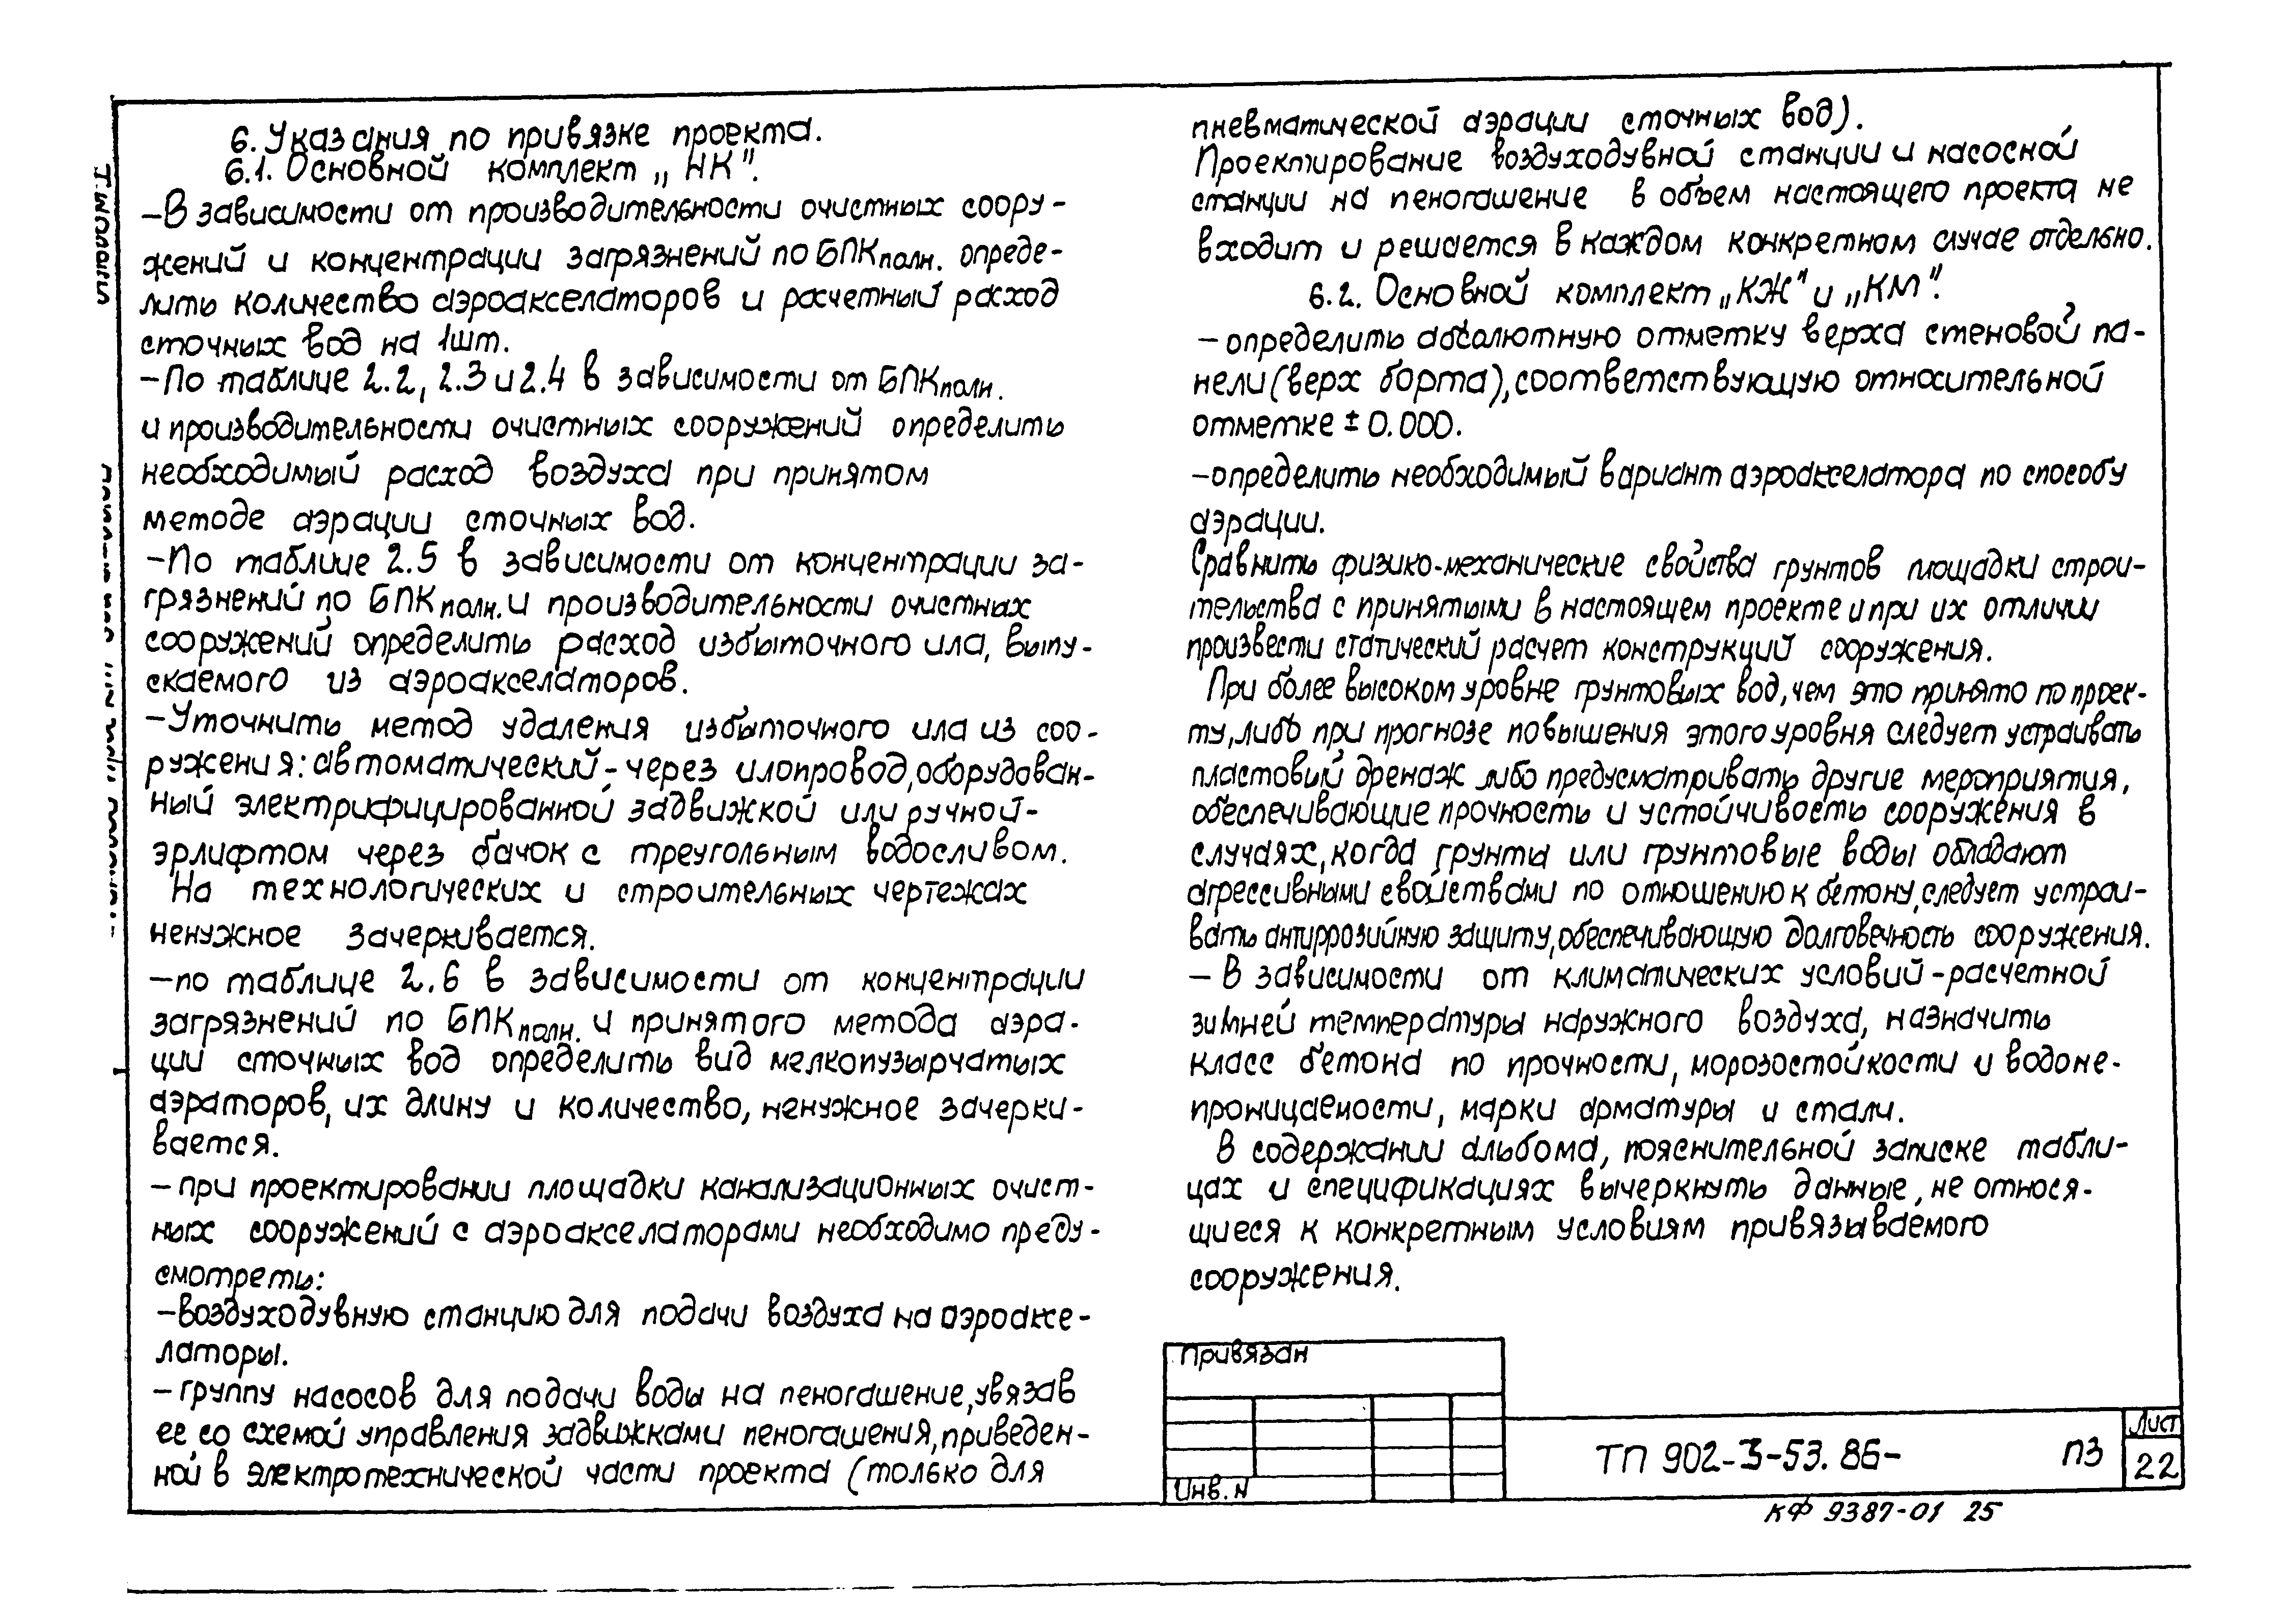 6. Указания по привязке проекта.
6.1. Основной комплект „НК".
–В зависимости от производительности очистных соору-
жений и концентрации загрязнений по БПКполн. опреде-
лить количество аэроакселаторов и расчетный расход
сточных вод на 1шт.
–По таблице 2.2, 2.3 и 2.4 в зависимости от БПКполн.
и производительности очистных сооружений определить
необходимый расход воздуха при принятом
методе аэрации сточных вод.
–По таблице 2.5 в зависимости от концентрации за-
грязнений по БПКполн. и производительности очистных
сооружений определить расход избыточного ила, выпу-
скаемого из аэроакселаторов.
–Уточнить метод удаления избыточного ила из соо-
ружения: автоматический-через илопровод, оборудован-
ный электрифицированной задвижкой или ручной-
эрлифтом через бачок с треугольным водосливом.
На технологических и строительных чертежах
ненужное зачеркивается.
–по таблице 2.6 в зависимости от концентрации
загрязнений по БПКполн. и принятого метода аэра-
ции сточных вод определить вид мелкопузырчатых
аэраторов, их длину и количество, ненужное зачерки-
вается.
–при проектировании площадки канализационных очист-
ных сооружений с аэроакселаторами необходимо преду-
смотреть:
–воздуходувную станцию для подачи воздуха на аэроаксе-
латоры.
–группу насосов для подачи воды на пеногашение, увязав
ее со схемой управления задвижками пеногашения, приведен-
ной в электротехнической части проекта (только для
пневматической аэрации сточных вод).
Проектирование воздуходувной станции и насосной
станции на пеногашение в объем настоящего проекта не
входит и решается в каждом конкретном случае отдельно.
6.2. Основной комплект „КЖ" и „КМ".
–определить абсалютную отметку верха стеновой па-
нели (верх борта), соответствующую относительной
отметке ± 0.000.
–определить необходимый вариант аэроакселатора по способу
аэрации.
Сравнить физико-механические свойства грунтов площадки строи-
тельства с принятыми в настоящем проекте и при их отличии
произвести статический расчет конструкций сооружения.
При более высоком уровне грунтовых вод, чем это принято по проек-
ту, либо при прогнозе повышения этого уровня следует устраивать
пластовый дренаж либо предусматривать другие мероприятия,
обеспечивающие прочность и устойчивость сооружения в
случаях, когда грунты или грунтовые воды обладают
агрессивными свойствами по отношению к бетону, следует устраи-
вать антиррозийную защиту, обеспечивающую долговечность сооружения.
– В зависимости от климатических условий-расчетной
зимней температуры наружного воздуха, назначить
класс бетона по прочности, морозостойкости и водоне-
проницаемости, марки арматуры и стали.
В содержании альбома, пояснительной записке табли-
цах и спецификациях вычеркнуть данные, не относя-
щиеся к конкретным условиям привязываемого
сооружения.
Привязан
Инв. N
ТП 902-3-53.86- ПЗ
Лист
22
КФ 9387-01 25